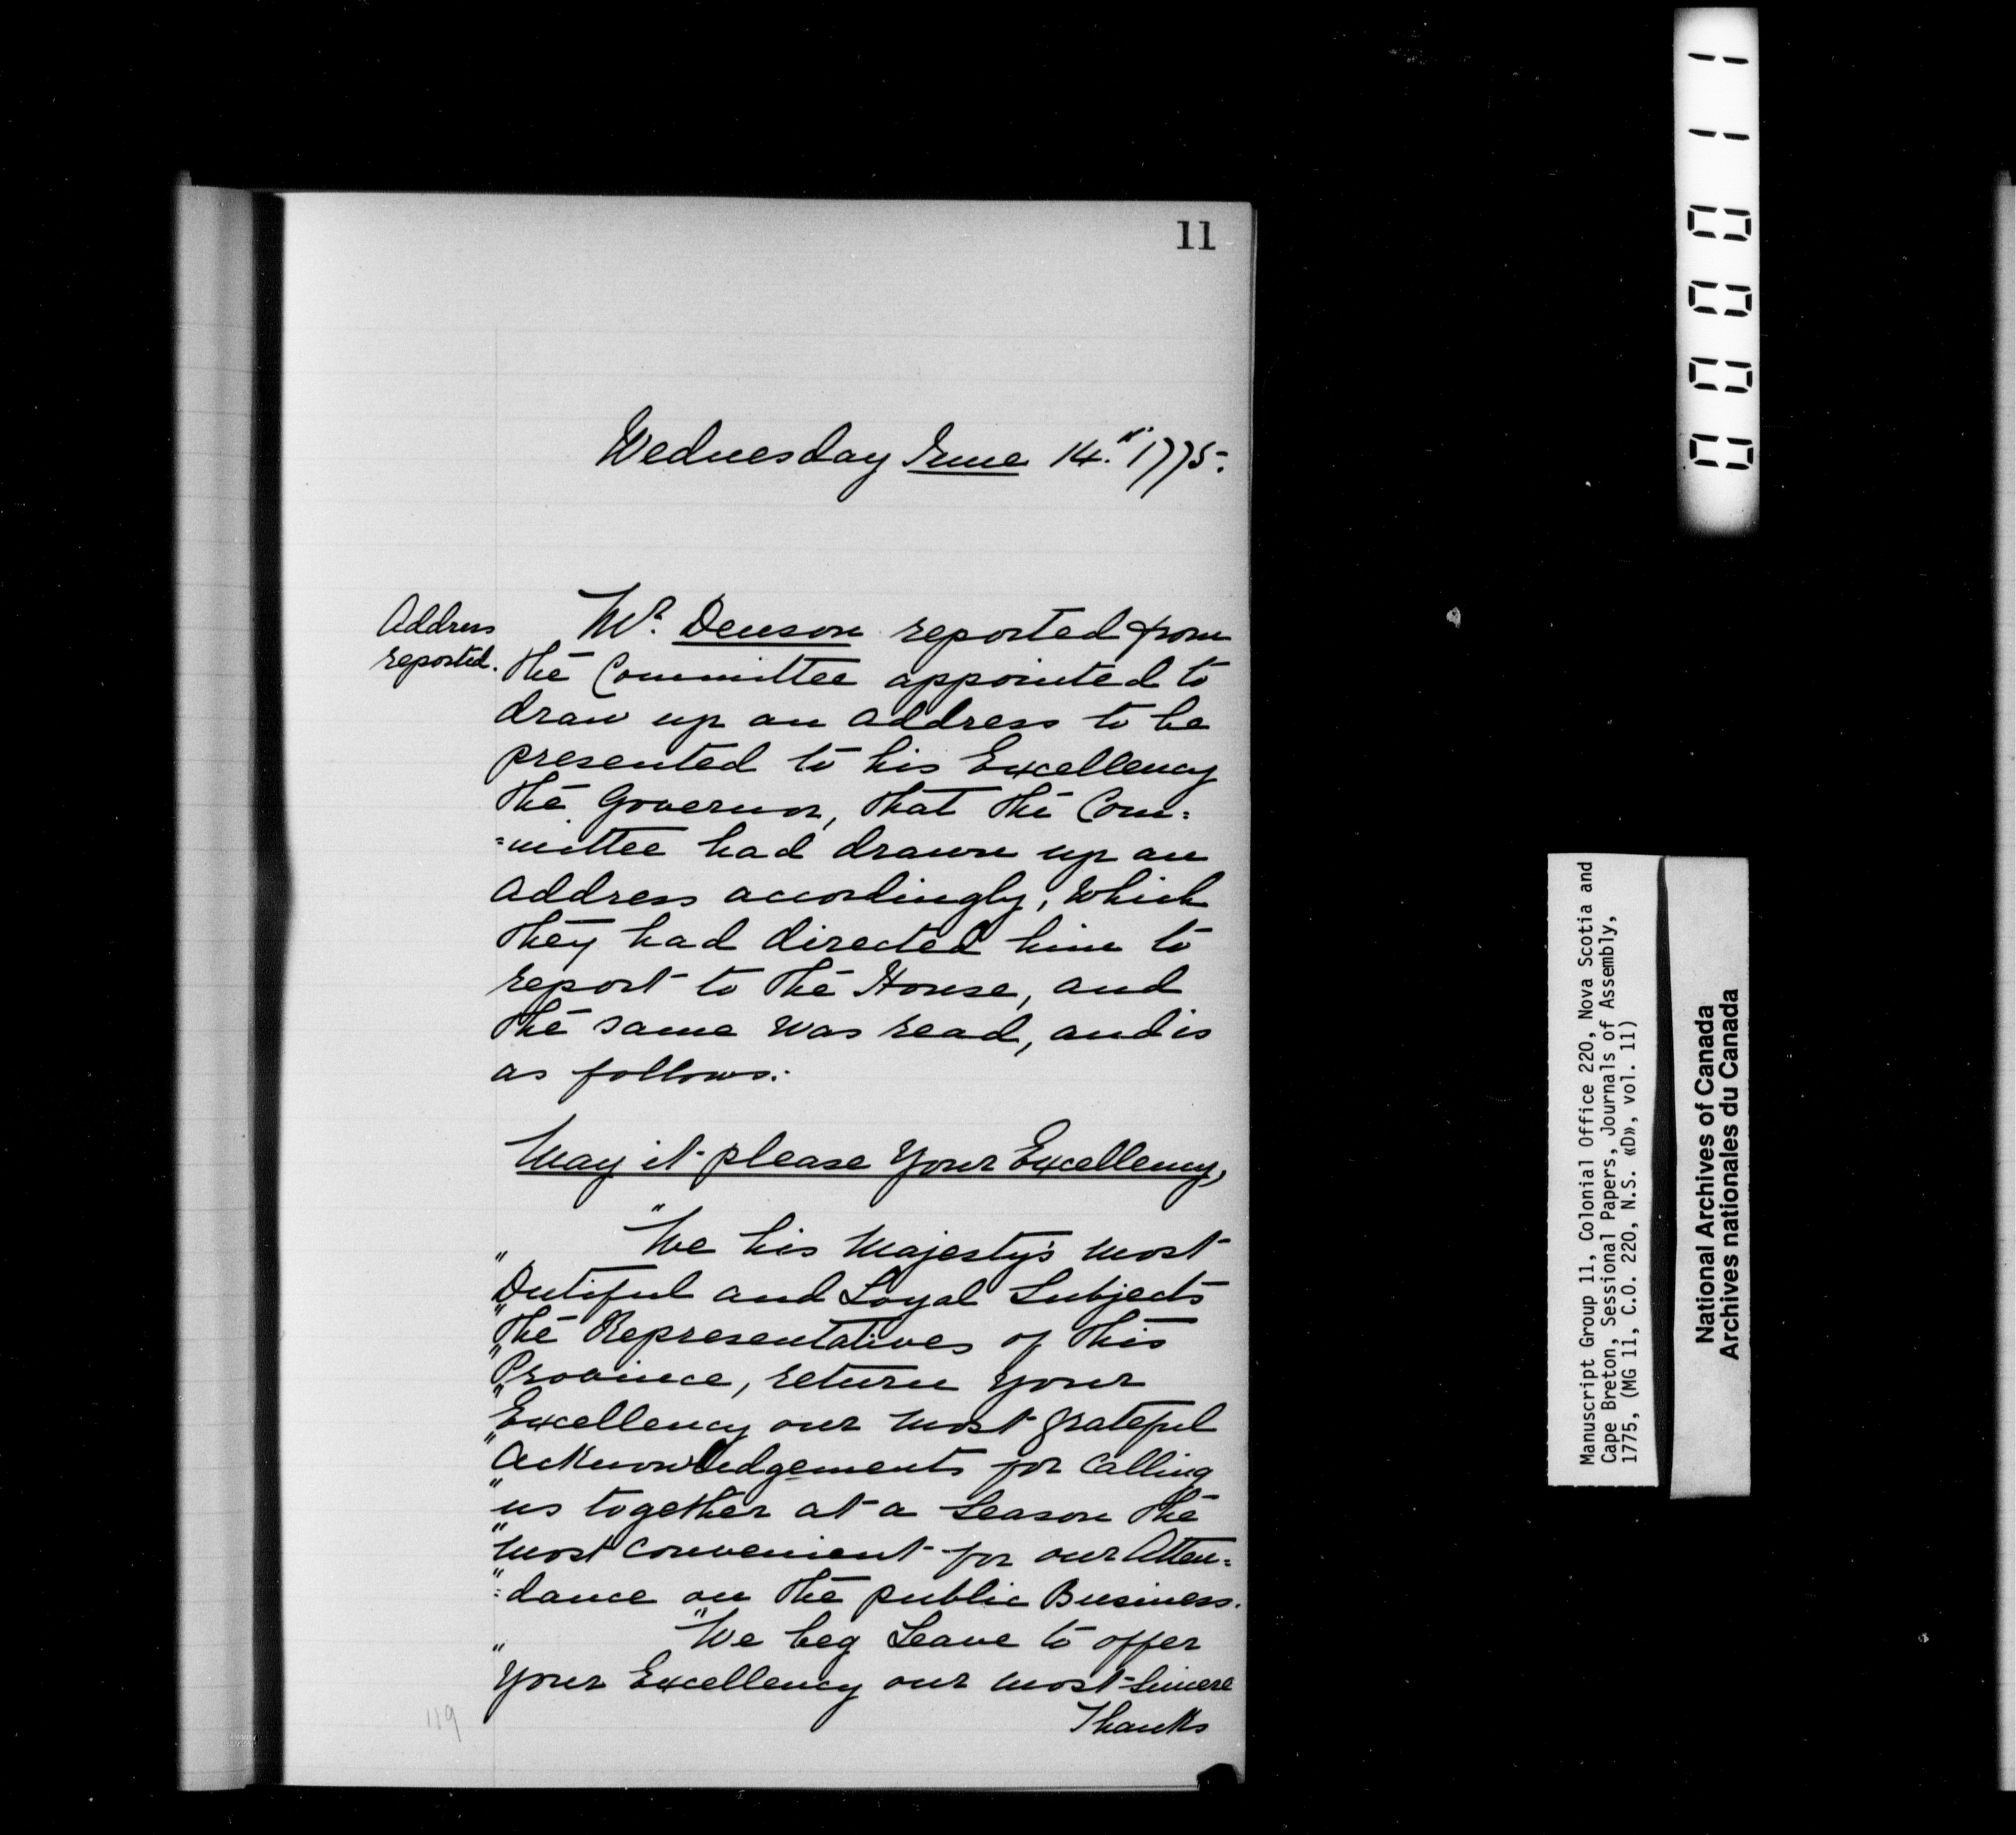 11
Wednesday June 14.th 1775.
Address
reported.
Mr. Denson reported from
the Committee appointed to
draw up an address to be
presented to his Excellency
the Governor, that the Com=
=mittee had drawn up an
address accordingly, which
they had directed him to
report to the House, and
the same was read, and is
as follows:
May it please Your Excellency,
"We his Majesty's most
"Dutiful and Loyal Subjects
"the Representatives of this
"Province, return your
"Excellency our most grateful
"Acknowledgements for calling
"us together at a Season the
"most convenient for our Atten=
"=dance on the public Business.
"We beg Leave to offer
"Your Excellency our most Sincere
Thanks
119
000011
Manuscript Group 11, Colonial Office 220, Nova Scotia and
Cape Breton, Sessional Papers, Journals of Assembly,
1775, (MG 11, C.O. 220, N.S. «D», vol. 11)
National Archives of Canada
Archives nationales du Canada